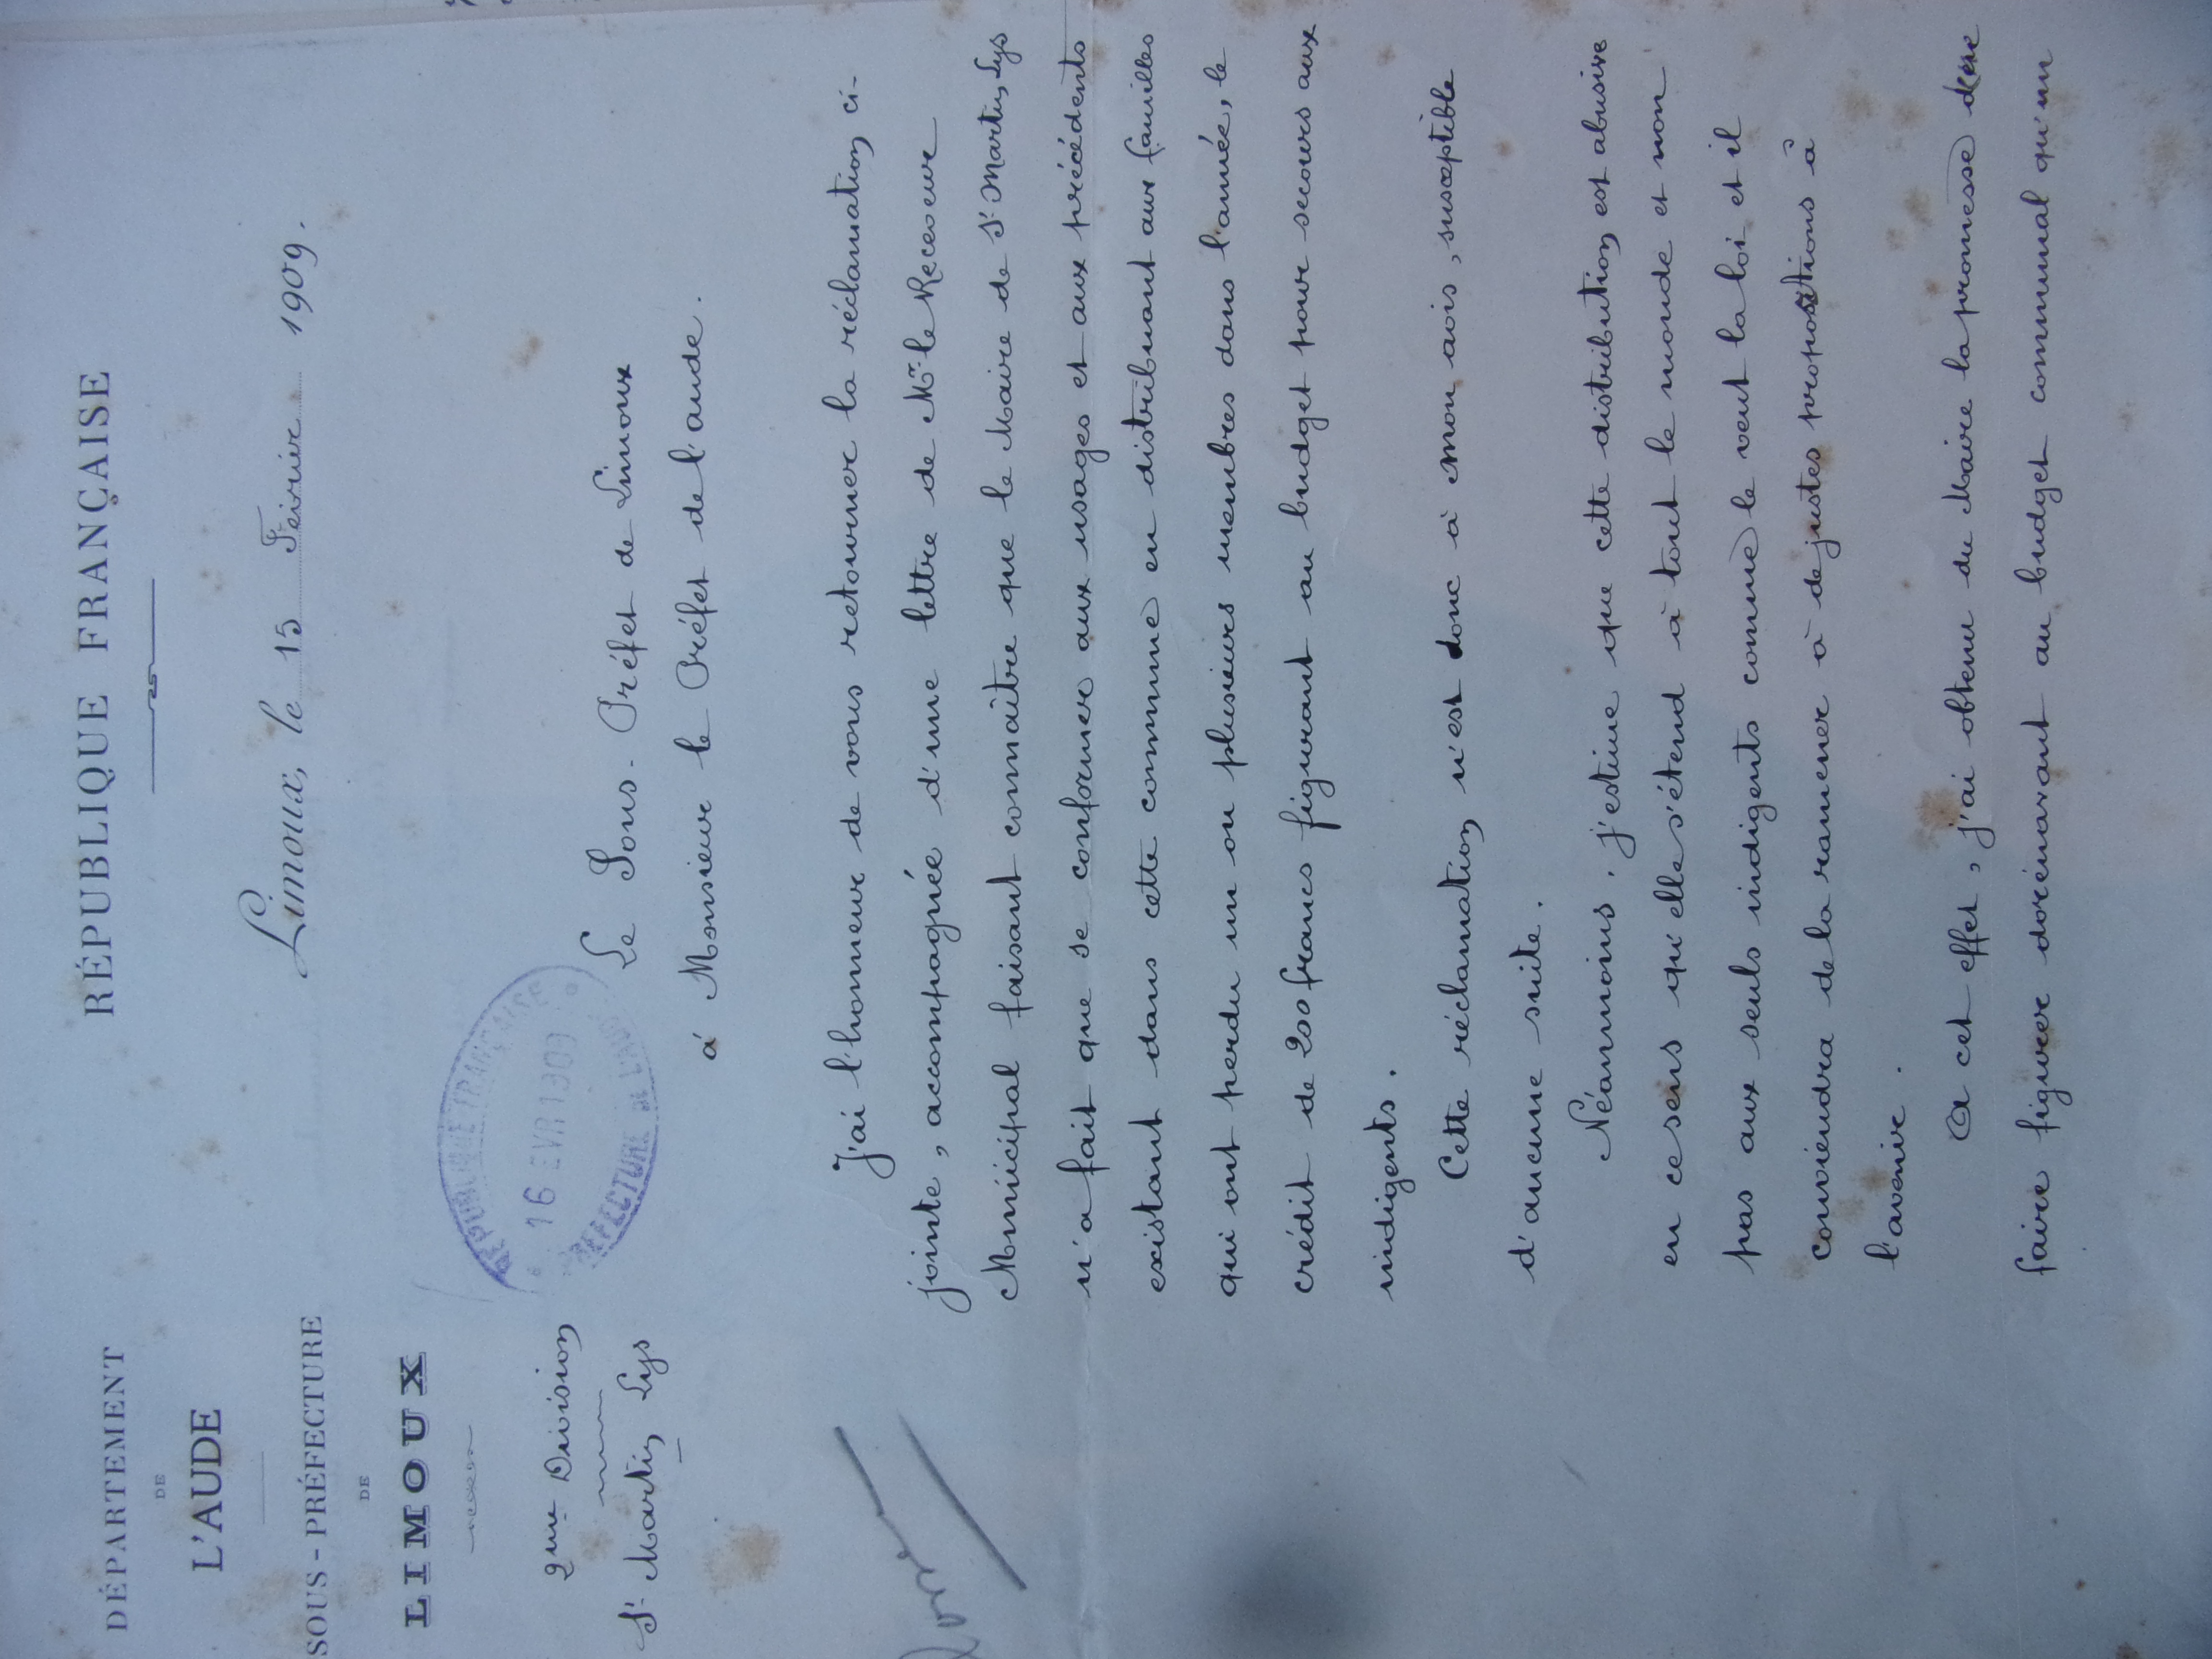 RÉPUBLIQUE FRANÇAISE
DÉPARTEMENT
DE
L'AUDE
SOUS-PRÉFECTURE
DE
LIMOUX
2me Division
St Martin Lys
Limoux, le 15 Février 1909.
RÉPUBLIQUE FRANÇAISE
16 EVR 1909
PREFECTURE DE L'AUDE
Le Sous-Préfet de Limoux
à Monsieur le Préfet de l'aude.
J'ai l'honneur de vous retourner la réclamation ci-
jointe, accompagnée d'une lettre de Mr le Receveur
Municipal faisant connaître que le Maire de St Martin Lys
n'a fait que se conformer aux usages et aux précédents
existant dans cette commune en distribuant aux familles
qui ont perdu un ou plusieurs membres dans l'année, le
crédit de 200 francs figurant au budget pour secours aux
indigents.
Cette réclamation n'est donc à mon avis, susceptible
d'aucune suite.
Néanmoins, j'estime que cette distribution est abusive
en ce sens qu'elle s'étend à tout le monde et non
pas aux seuls indigents comme le veut la loi et il
conviendra de la ramener à de justes propositions à
l'avenir.
A cet effet, j'ai obtenu du Maire la promesse de ne
faire figurer dorénavant au budget communal qu'un